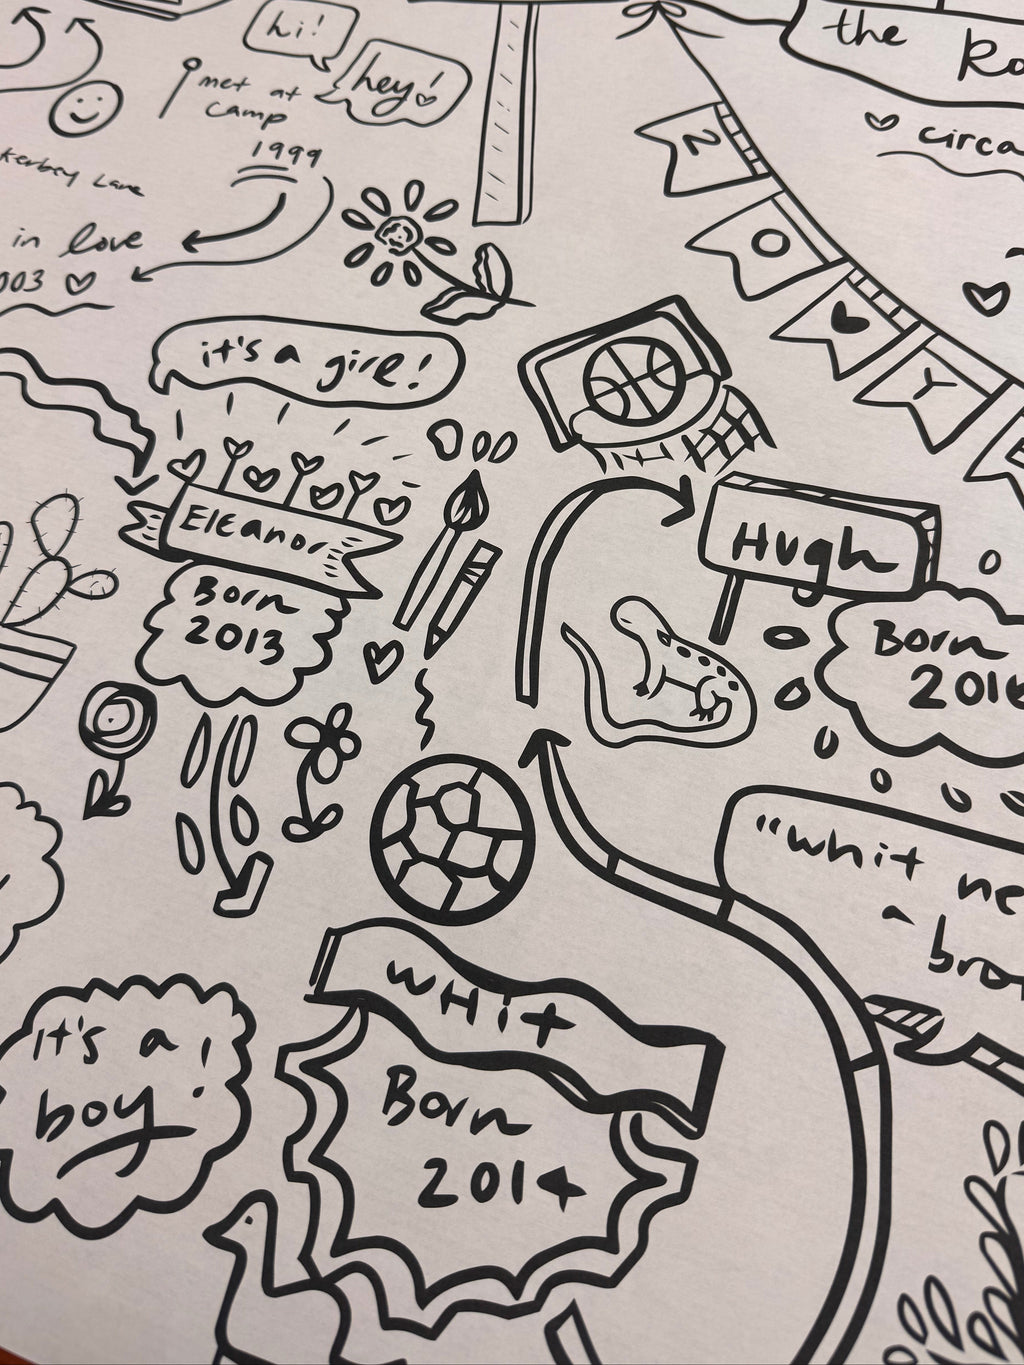 hi!
hey!
met at
camp
1999
Lane
in love
003
the
circa
JOY
it's a girl!
Eleanor
Born
2013
Hugh
Born
201
"whit
a
it's a
boy!
Whit
Born
2014